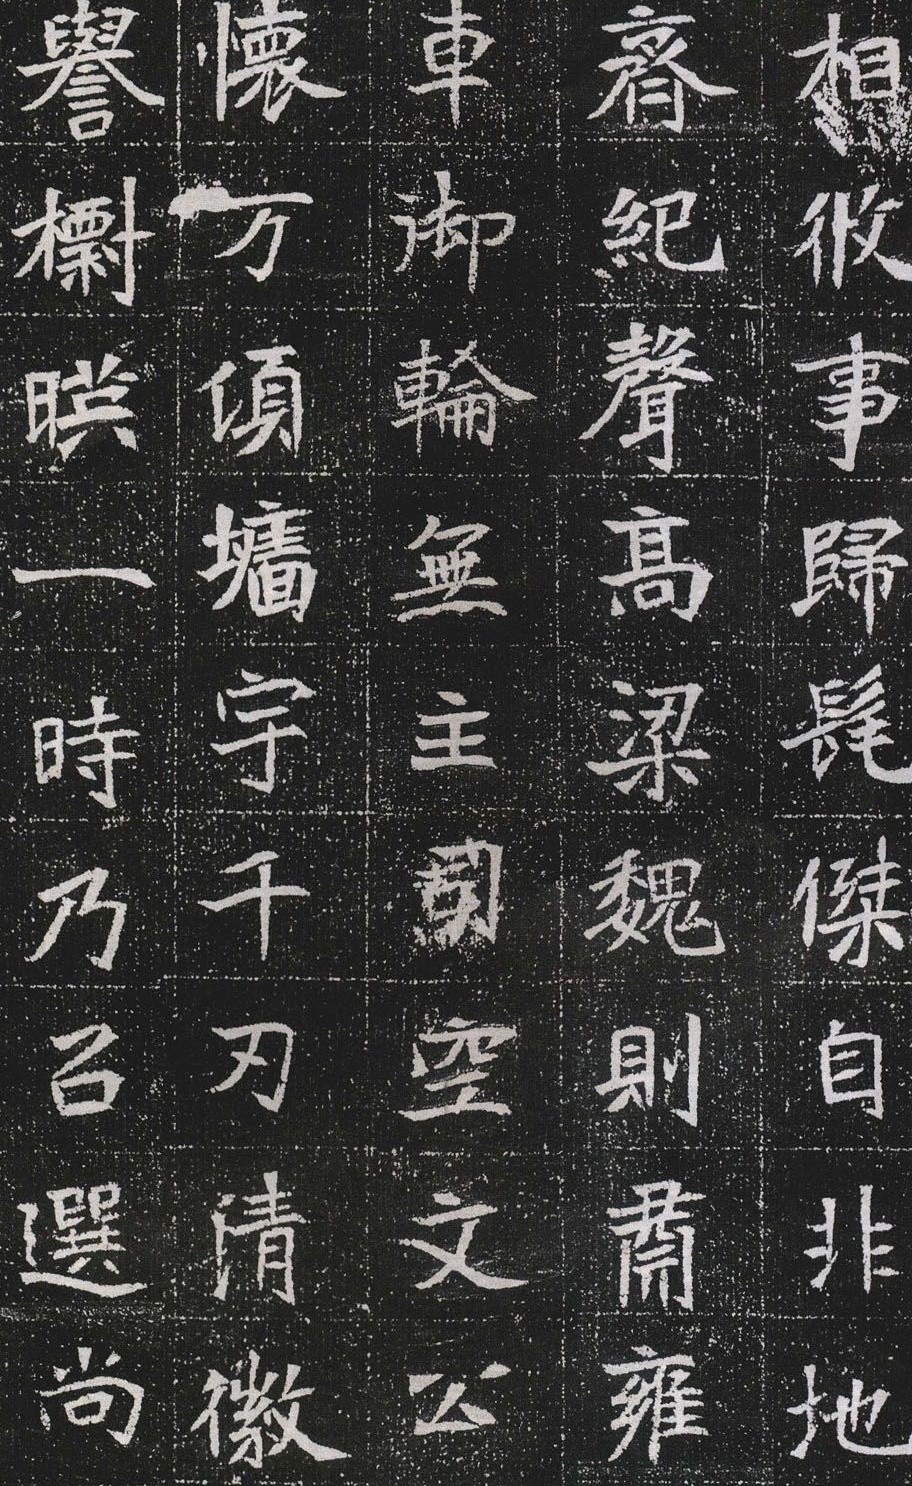 相攸事歸髦傑自非地
齊紀聲髙梁魏則肅雍
車御輪無主司空文公
懷万頃墻宇千刃清徽
譽檦暎一時乃召選尚